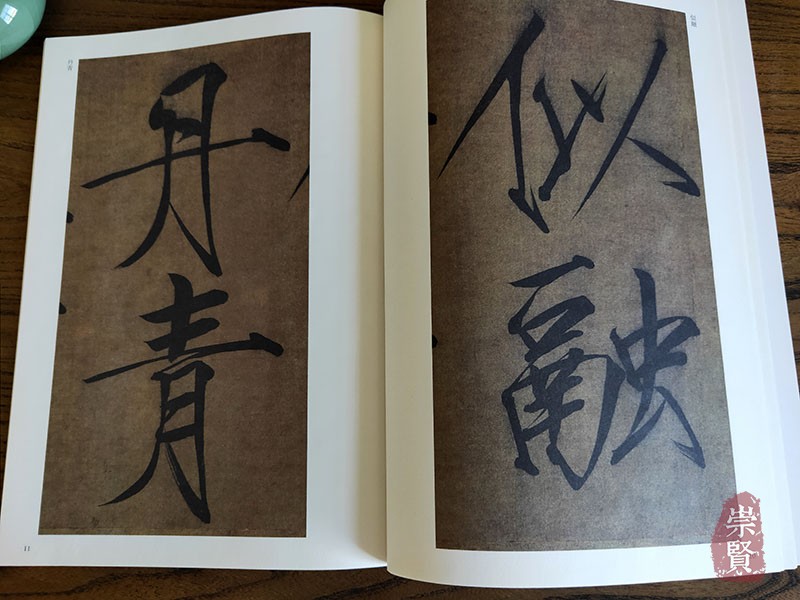 似融
似融
丹青
丹青
11
崇賢